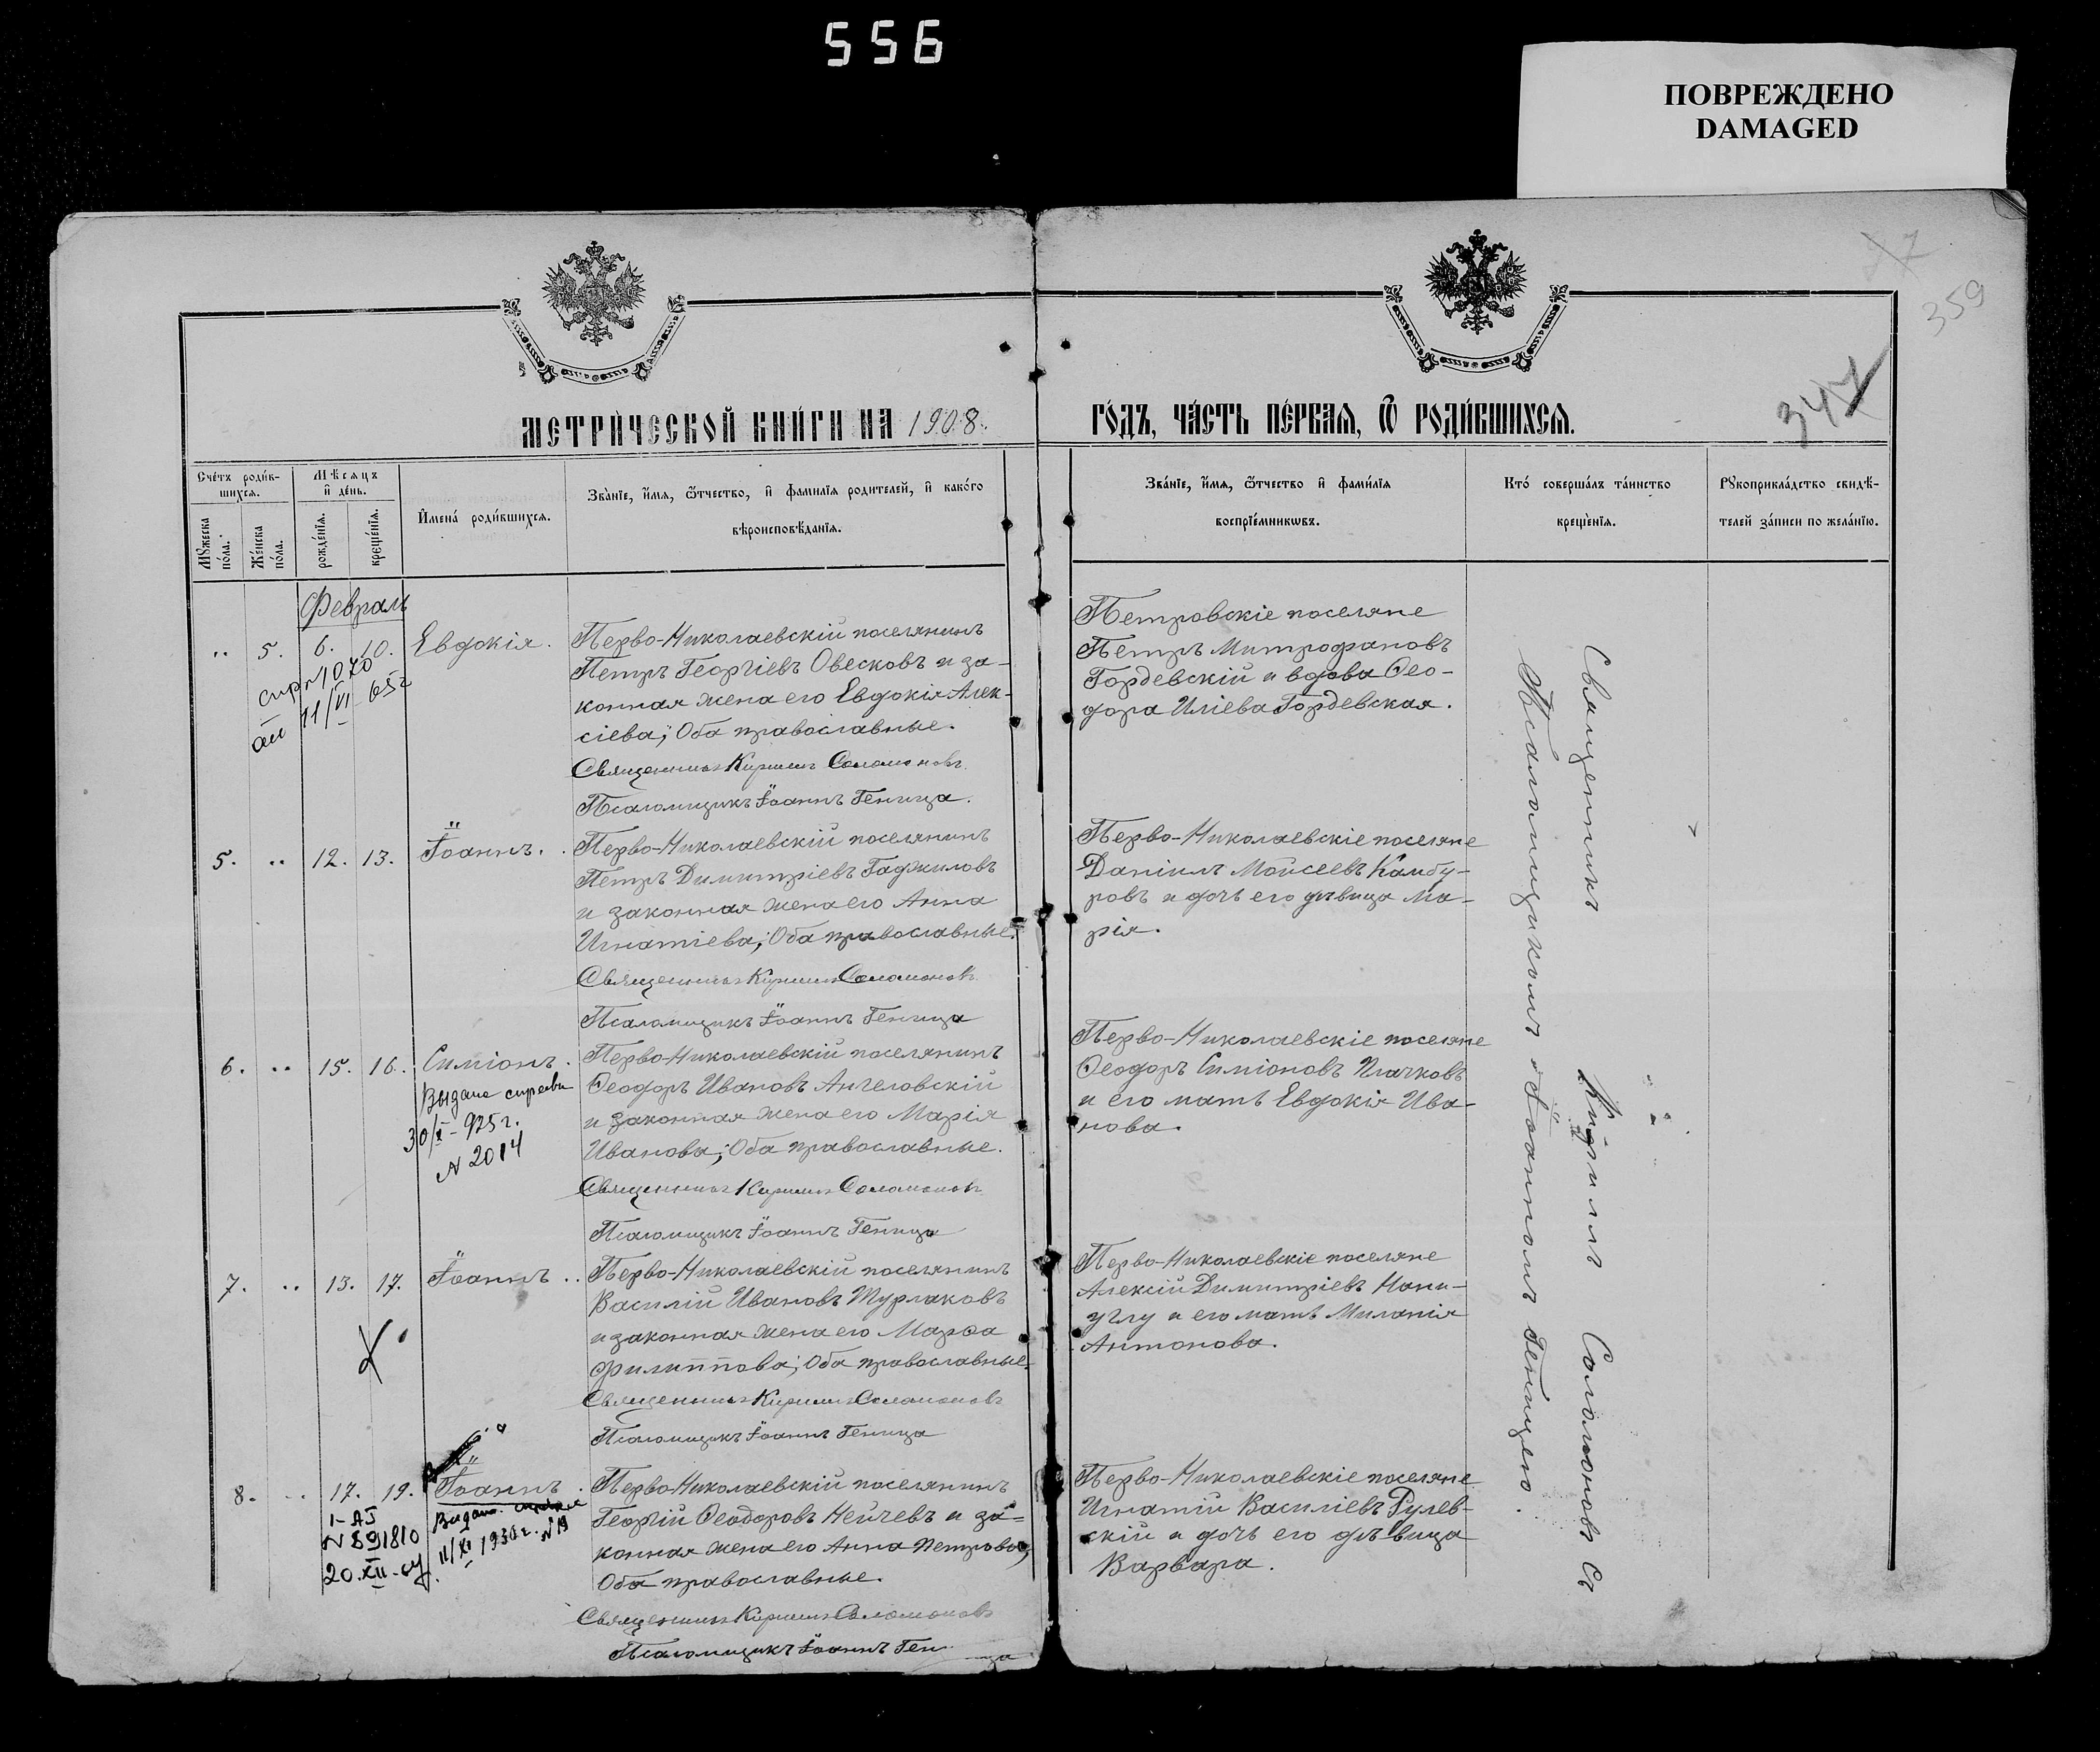 556
ПОВРЕЖДЕНО
DAMAGED
359
347
МЕТРИ́ЧЕСКОЙ КНИ́ГИ НА 1908.
ГО́ДЪ, ЧА́СТЬ ПЕ́РВАѦ, Ѿ РОДИ́ВШИХСѦ.
Сче́тъ роди́в-
шихсѧ.
Мꙋ́жеска по́ла.
Же́нска по́ла.
Мѣсѧцъ
и҆ де́нь.
рожде́нїѧ.
креще́нїѧ.
И҆мена́ роди́вшихсѧ.
Зва́нїе, и҆́мѧ, ѻ҆́тчество, и҆ фами́лїѧ родителей, и҆ како́го
вѣроисповѣ́данїѧ.
Зва́нїе, и҆́мѧ, ѻ҆́тчество и҆ фами́лїѧ
воспрїе́мникѡвъ.
Кто́ соверша́лъ та́инство
креще́нїѧ.
Рꙋкоприкла́дство свидѣ́-
телей за́писи по жела́нїю.
Февраль
5. 6. 10. Евдокія.
спр N 1070
11/VI 65г
Перво-Николаевскій поселянинъ
Петръ Георгіевъ Овесковъ и за-
конная жена его Евдокія Алек-
сіева; Оба православные.
Священникъ Кириллъ Соломоновъ
Псаломщикъ Іоаннъ Геница.
Петровскіе поселяне
Петръ Митрофановъ
Гордевскій и вдова Ѳео-
дора Иліева Гордевская.
5. 12. 13. Іоаннъ.
Перво-Николаевскій поселянинъ
Петръ Димитріевъ Гаджиловъ
и законная жена его Анна
Игнатіева; Оба православные.
Священникъ Кириллъ Соломоновъ
Псаломщикъ Іоаннъ Геница
Перво-Николаевскіе поселяне
Даніилъ Моисеевъ Камбу-
ровъ и дочь его дѣвица Ма-
рія.
6. 15. 16. Симіонъ.
Выдана справка
30/X-975г.
N 2014
Перво-Николаевскій поселянинъ
Ѳеодоръ Ивановъ Ангеловскій
и законная жена его Марія
Иванова; Оба православные.
Священникъ Кириллъ Соломоновъ
Псаломщикъ Іоаннъ Геница
Перво-Николаевскіе поселяне
Ѳеодоръ Симіоновъ Плачковъ
и его мать Евдокія Ива-
нова.
7. 13. 17. Іоаннъ.
Перво-Николаевскій поселянинъ
Василій Ивановъ Турлаковъ
и законная жена его Марѳа
Филиппова; Оба православные.
Священникъ Кириллъ Соломоновъ
Псаломщикъ Іоаннъ Геница
Перво-Николаевскіе поселяне
Алексій Димитріевъ Нани-
углу и его мать Миланія
Антонова.
8. 17. 19. Іоаннъ.
I-АЈ
N 591810
20.XII-
Видано справка
11/XI 1930г. N 19
Перво-Николаевскій поселянинъ
Георгій Ѳеодоровъ Нейчевъ и за-
конная жена его Анна Петрова;
Оба православные.
Священникъ Кириллъ Соломоновъ
Псаломщикъ Іоаннъ Геница
Перво-Николаевскіе поселяне
Игнатій Василіевъ Гулев-
скій и дочь его дѣвица
Варвара.
Священникъ Кириллъ Соломоновъ съ
Псаломщикомъ Іоанномъ Геницею.